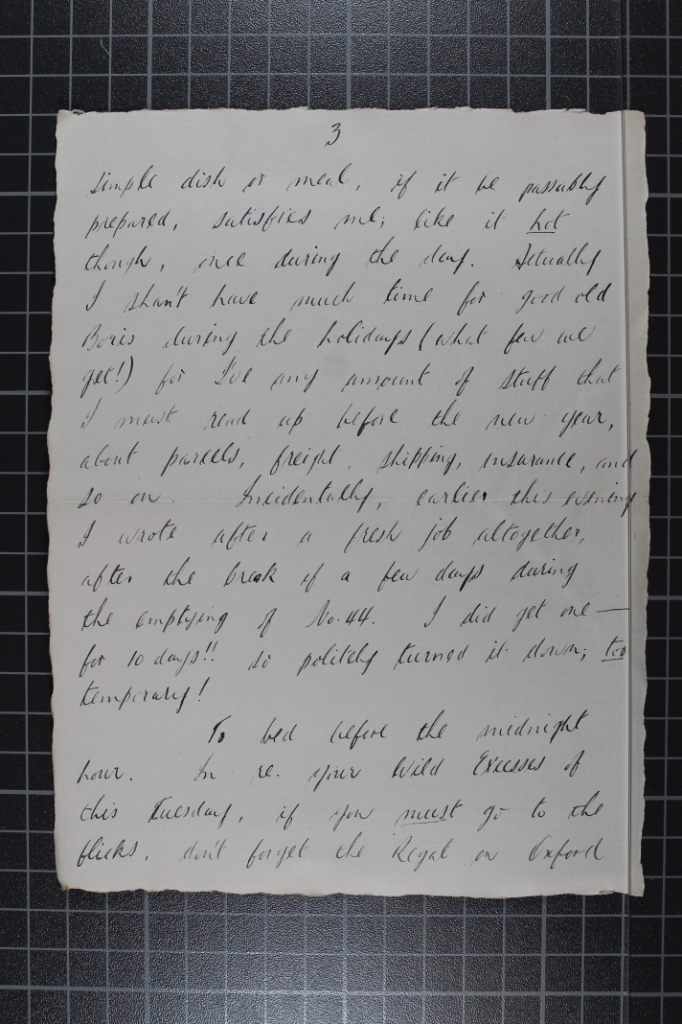 3
simple dish or meal, if it be passably
prepared, satisfies me; like it hot
though, once during the day. Actually
I shan't have much time for good old
Boris during the holidays (what few we
get!) for I've any amount of stuff that
I must read up before the new year,
about parcels, freight, shipping, insurance, and
so on. Incidentally, earlier this evening
I wrote after a fresh job altogether,
after the break of a few days during
the emptying of No. 44. I did get one —
for 10 days!! so politely turned it down; too
temporary!
To bed before the midnight
hour. In re. your Wild Excesses of
this Tuesday, if you must go to the
flicks, don't forget the Regal on Oxford